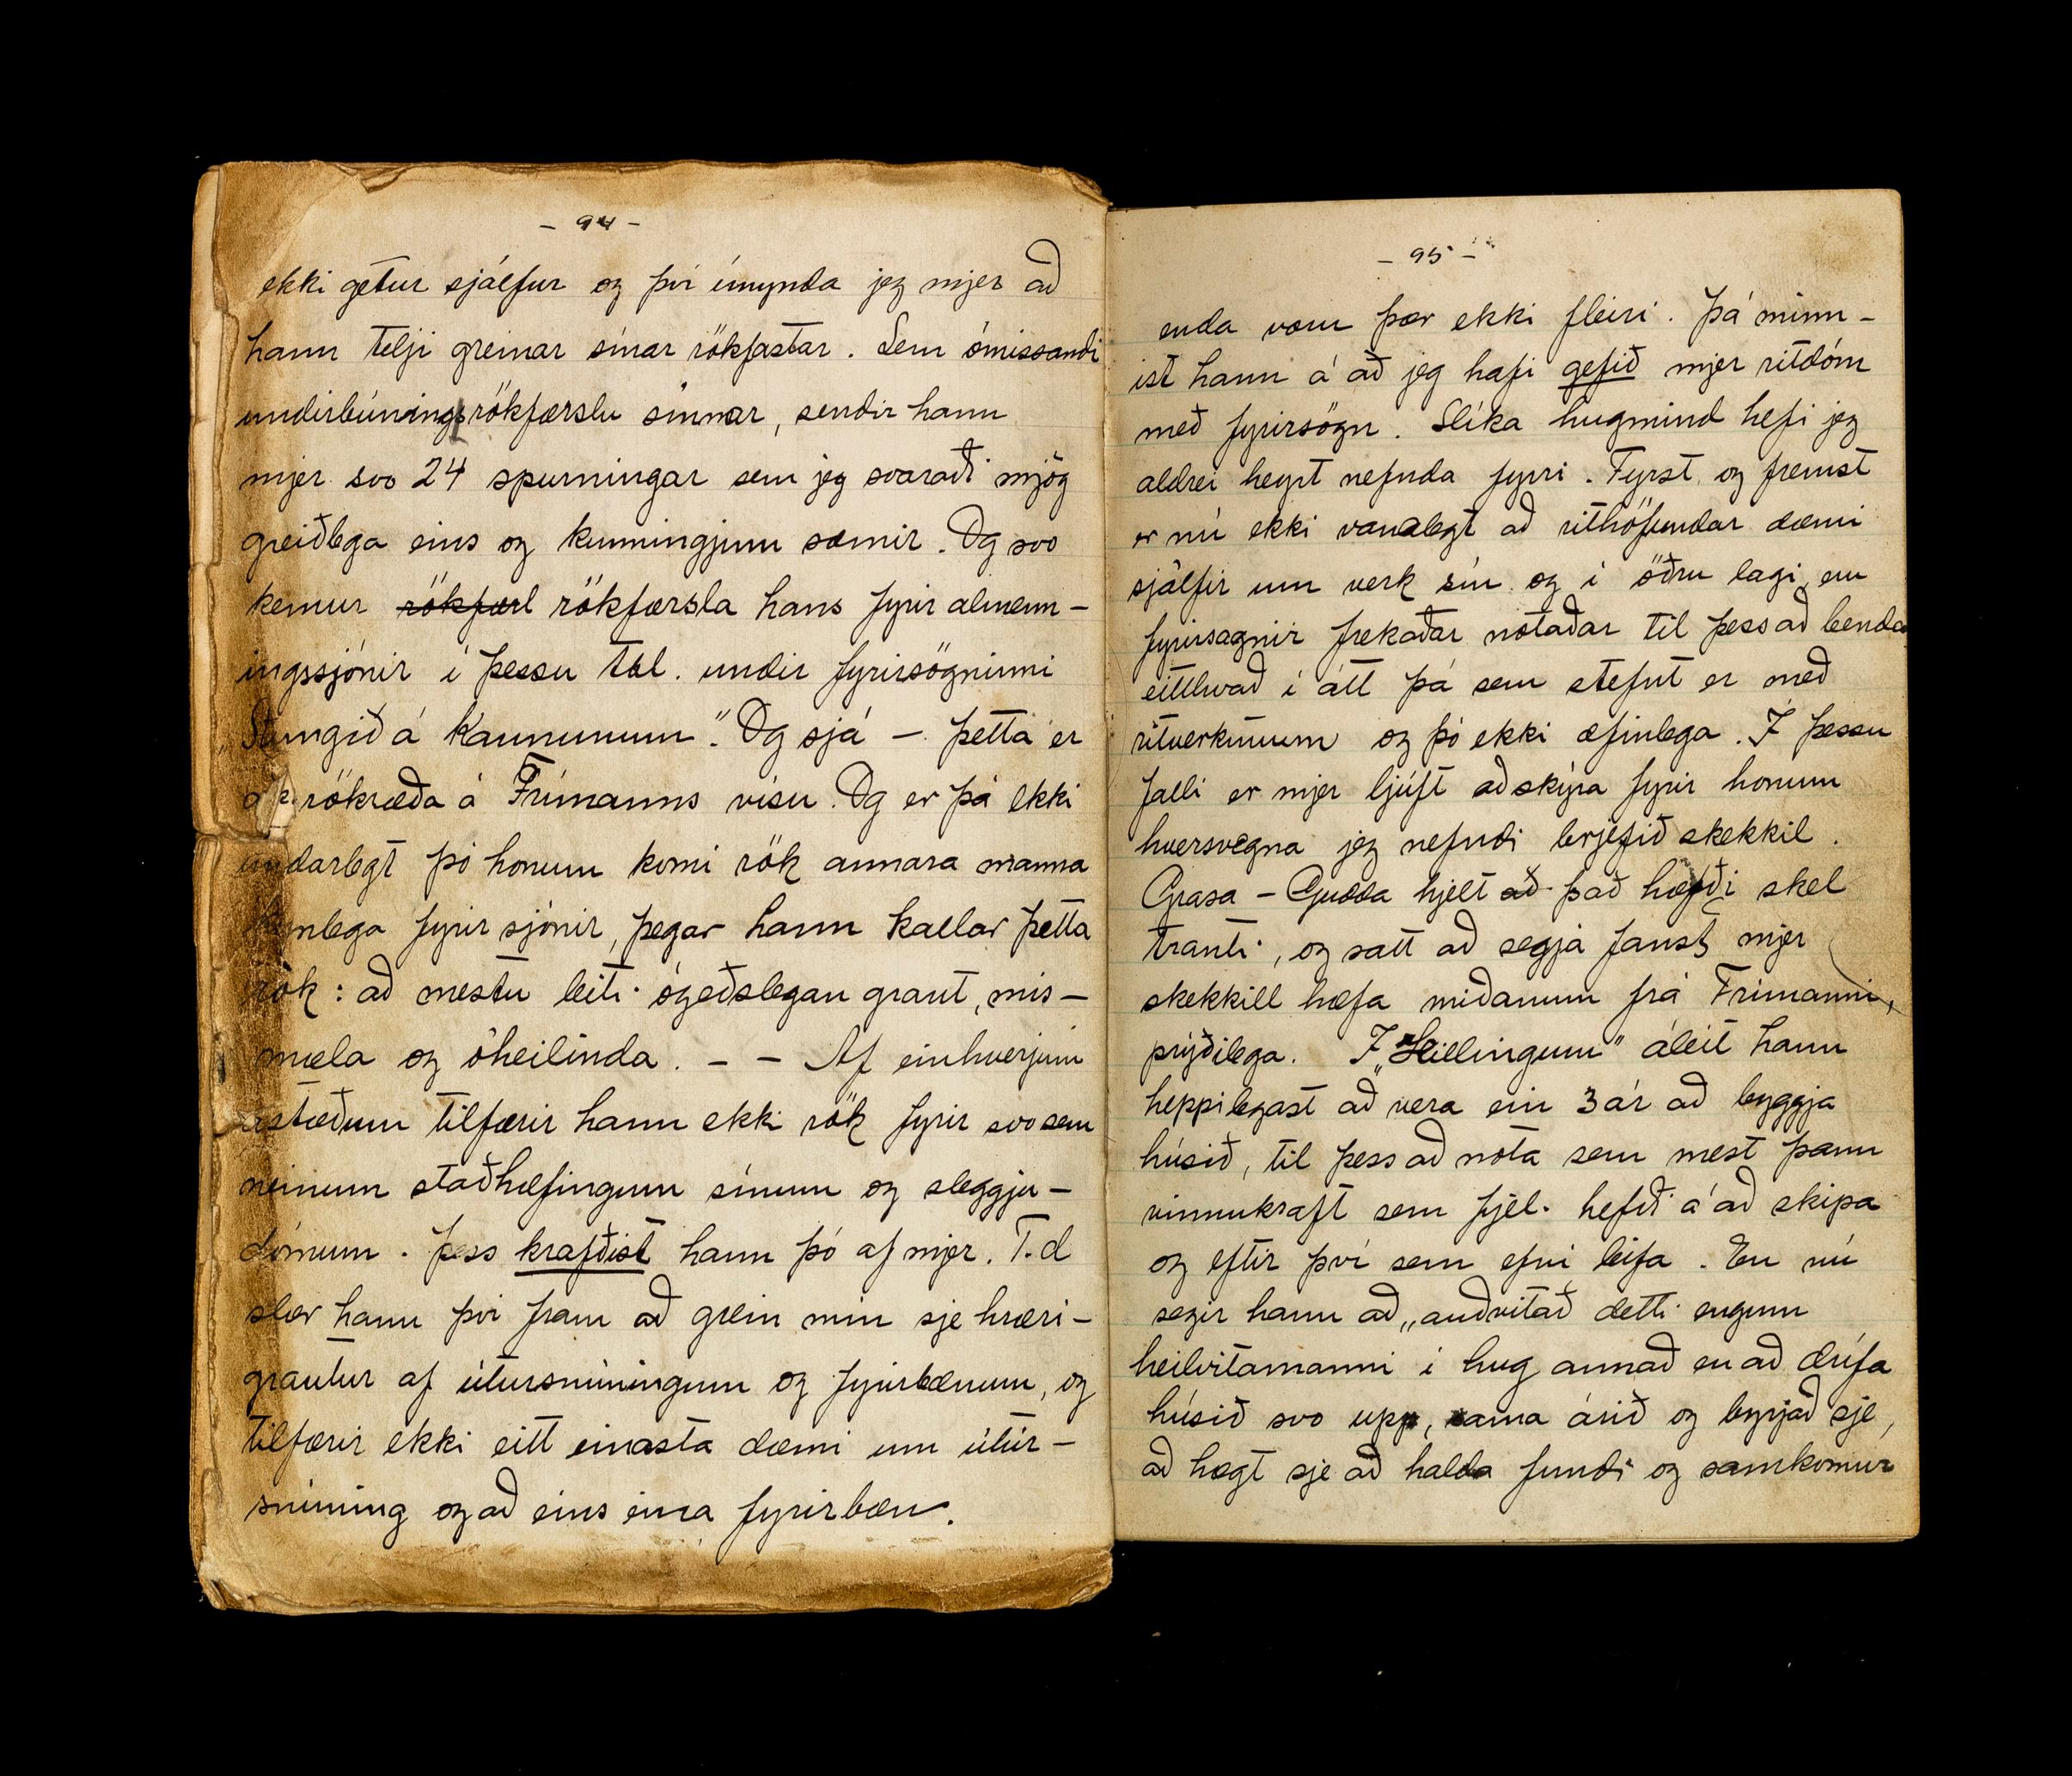 - 94 -
ekki getur sjálfur og því ímynda jeg mjer að
hann telji greinar sínar rökfastar. Sem ómissandi
undirbúnings rökfærslu sinnar, sendir hann
mjer svo 24 spurningar sem jeg svaraði mjög
greiðlega eins og kunningjum sæmir. Og svo
kemur rökfærl rökfærsla hans fyrir almenn-
ingssjónir í þessu tbl. undir fyrirsögninni
„Stungið á kaununum". Og sjá - þetta er
rökræða á Frímanns vísu. Og er þá ekki
undarlegt þó honum komi rök annara manna
kynlega fyrir sjónir, þegar hann kallar þetta
rök: að mestu leiti ógeðslegan graut, mis-
mæla og óheilinda. - - Af einhverjum
ástæðum tilfærir hann ekki rök fyrir svo sem
neinum staðhæfingum sínum og sleggju-
dómum. Þess krafðist hann þó af mjer. T.d
slær hann því fram að grein mín sje hræri-
grautur af útúrsnúningum og fyrirbænum, og
tilfærir ekki eitt einasta dæmi um útúr-
snúning og að eins eina fyrirbæn.
- 95 -
enda voru þær ekki fleiri. Þá minn-
ist hann á að jeg hafi gefið mjer ritdóm
með fyrirsögn. Slíka hugmind hefi jeg
aldrei heyrt nefnda fyrri. Fyrst og fremst
er nú ekki vanalegt að rithöfundar dæmi
sjálfir um verk sín og í öðru lagi eru
fyrirsagnir frekaðar notaðar til þess að benda
eitthvað í átt þá sem stefnt er með
ritverkinum og þó ekki æfinlega. Í þessu
falli er mjer ljúft að skýra fyrir honum
hversvegna jeg nefndi brjefið skekkil.
Grasa - Gudda hjelt að það hæfði skel
tranti, og satt að segja fanst mjer
skekkill hæfa miðanum frá Frímanni,
prýðilega. Í „Hillingum" áleit hann
heppilegast að vera ein 3 ár að byggja
húsið, til þess að nota sem mest þann
vinnukraft sem fjel. hefði á að skipa
og eftir því sem efni leifa. En nú
segir hann að „auðvitað detti engum
heilvitamanni í hug annað en að drífa
húsið svo upp, sama árið og byrjað sje,
að hægt sje að halda fundi og samkomur